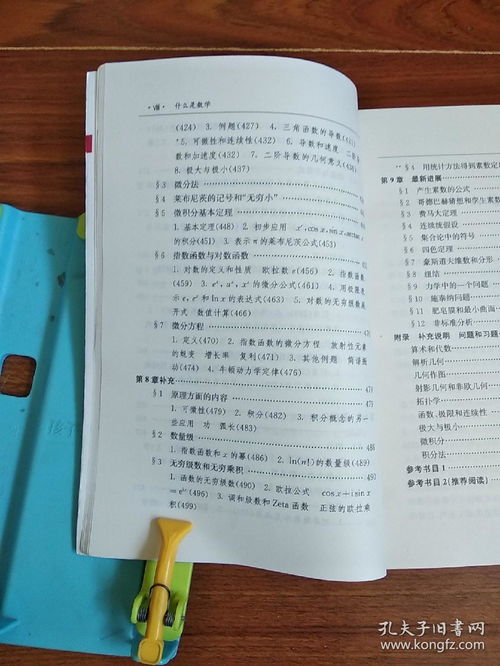 · Ⅷ · 什么是数学
(424) 3. 例题(427) 4. 三角函数的导数(431)
*5. 可微性和连续性(432) 6. 导数和速度 二阶导
数和加速度(432) 7. 二阶导数的几何意义(434)
8. 极大与极小(437)
§3 微分法
§4 莱布尼茨的记号和“无穷小”
§5 微积分基本定理
1. 基本定理(448) 2. 初步应用
的积分(451) 3. 表示π的莱布尼茨公式(453)
§6 指数函数与对数函数
1. 对数的定义和性质 欧拉数e(456) 2. 指数函数
(459) 3. 的微分公式(461) 4. 用极限表
示e, 和ln x的表达式(463) 5. 对数的无穷级数展
开式 数值计算(466)
§7 微分方程
1. 定义(470) 2. 指数函数的微分方程 放射性元素
的蜕变 增长率 复利(471) 3. 其他例题 简谐振
动(474) 4. 牛顿动力学定律(476)
第8章补充
§1 原理方面的内容
1. 可微性(479) 2. 积分(482) 3. 积分概念的另一
些应用 功 弧长(483)
§2 数量级 486
1. 指数函数和x的幂(486) 2. ln(n!)的数量级(489)
§3 无穷级数和无穷乘积 490
1. 函数的无穷级数(490) 2. 欧拉公式 cos x+i sin x
(496) 3. 调和级数和Zeta函数 正弦的欧拉乘
积(499)
**§4 用统计方法得到素数定
第9章 最新进展
§1 产生素数的公式
§2 哥德巴赫猜想和孪生素数
§3 费马大定理
§4 连续统假设
§5 集合论中的符号
§6 四色定理
§7 豪斯道夫维数和分形
§8 纽结
§9 力学中的一个问题
§10 施泰纳问题
§11 肥皂膜和最小曲面
§12 非标准分析
附录 补充说明 问题和习题
算术和代数
解析几何
几何作图
射影几何和非欧几何
拓扑学
函数、极限和连续性
极大与极小
微积分
积分法
参考书目1
参考书目2(推荐阅读)
孔夫子旧书网
www.kongfz.com